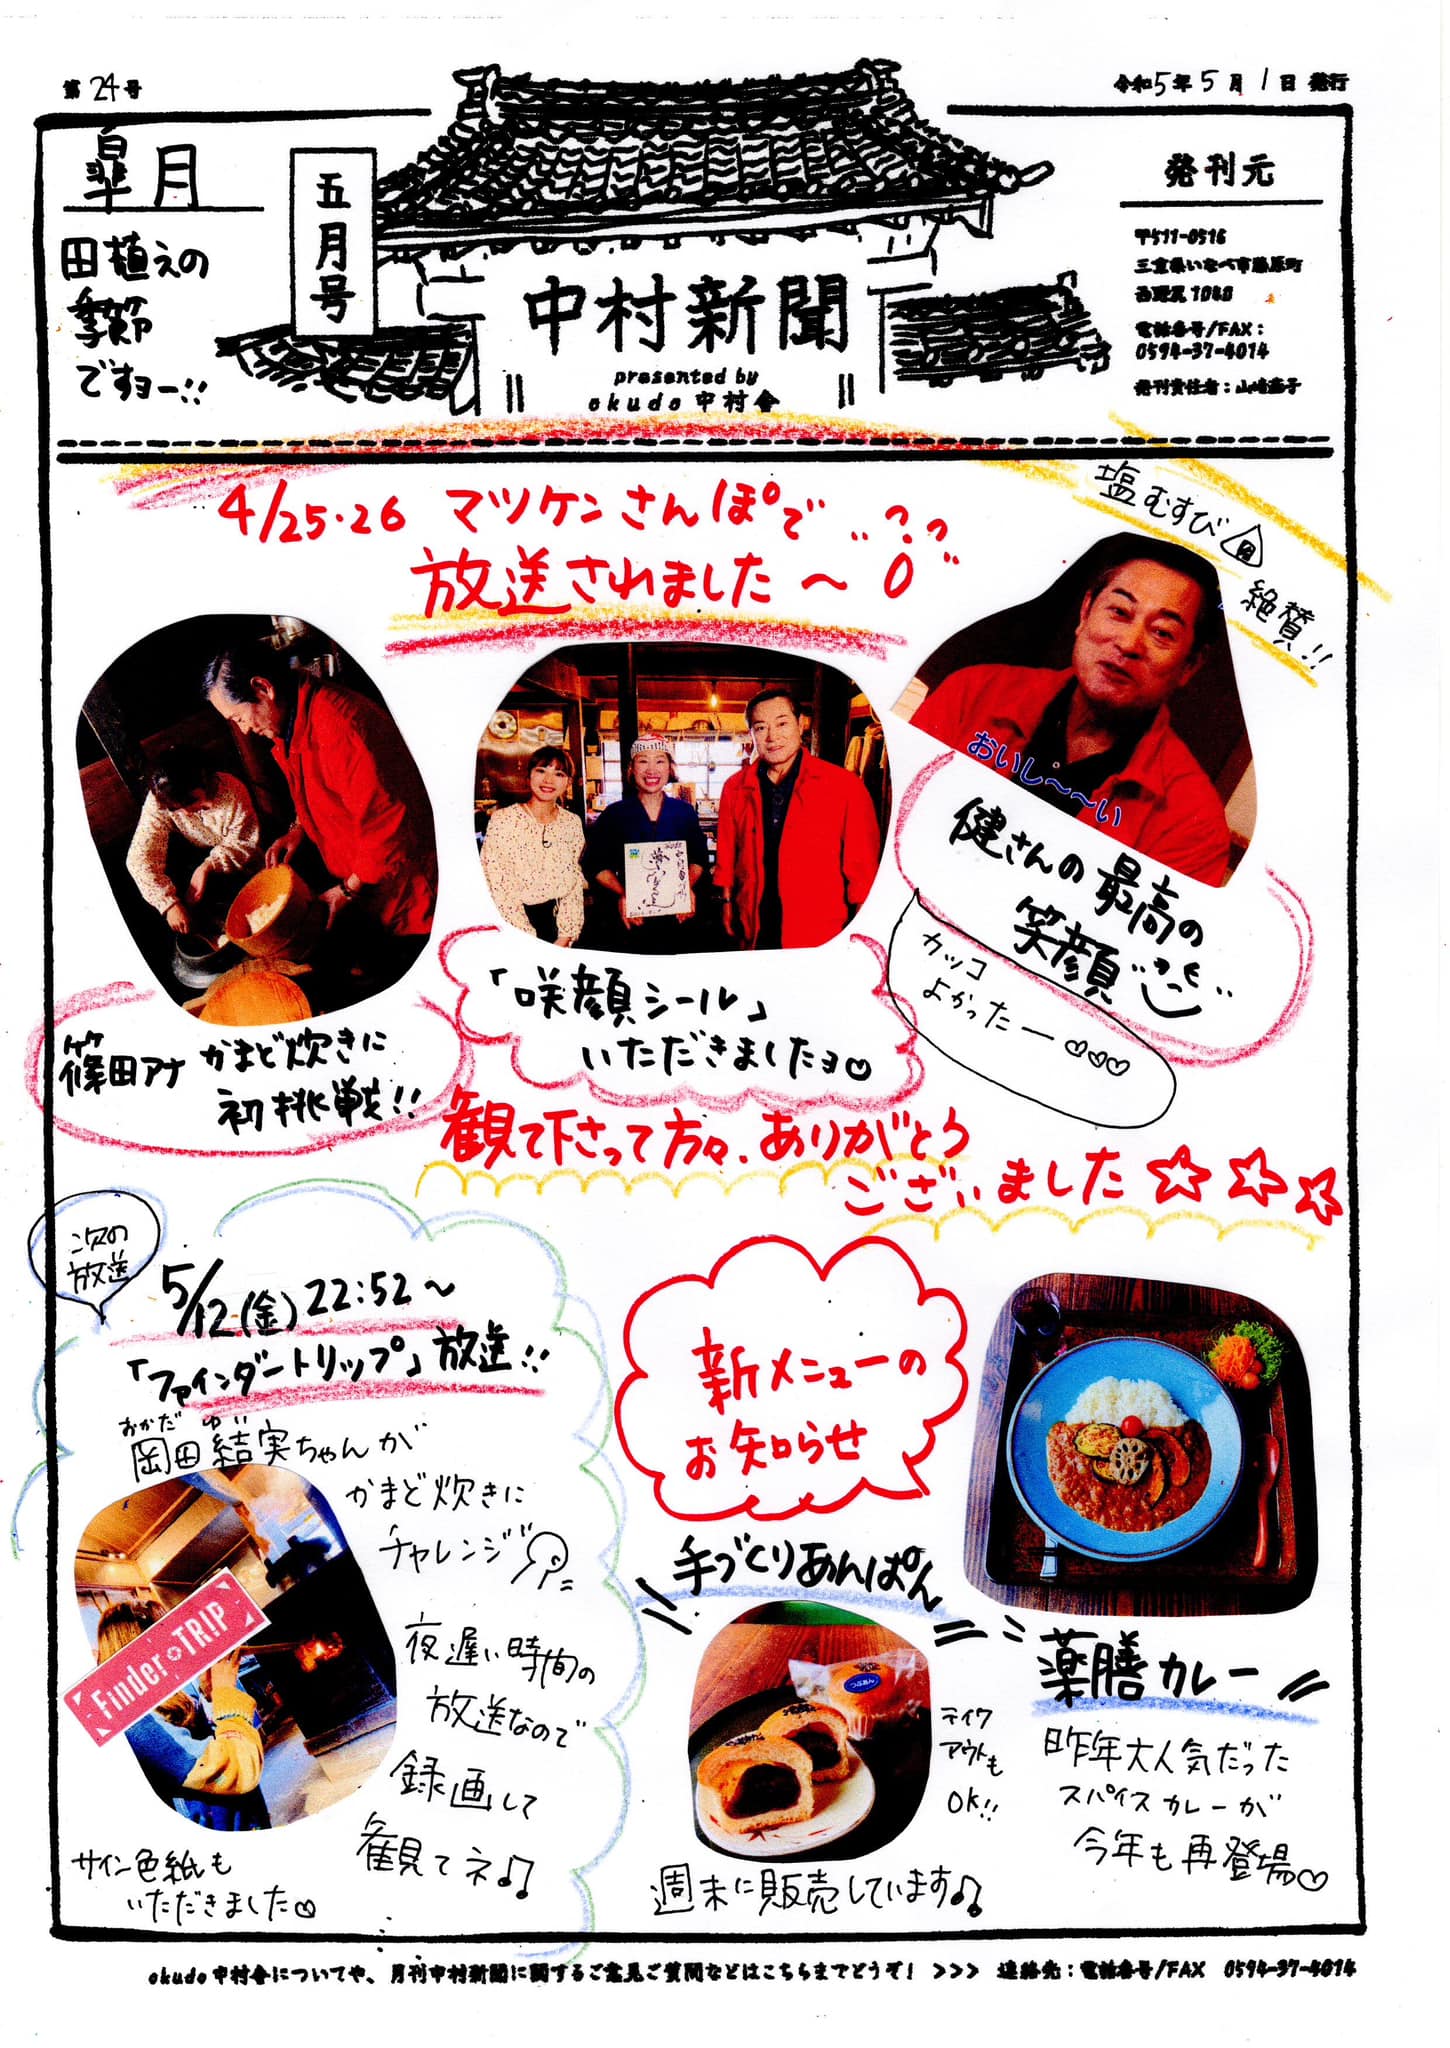 第24号
令和5年5月1日 発行
皐月
田植えの
季節
ですョー!!
五月号
中村新聞
presented by
okudo中村舎
発刊元
〒511-0516
三重県いなべ市藤原町
西野尻1080
電話番号/FAX:
0594-37-4014
4/25・26 マツケンさんぽで
放送されました〜
塩むすび
絶賛!!
おいし〜〜い
健さんの最高の
笑顔
カッコ
よかったー
「咲顔シール」
いただきましたョ
篠田アナ かまど炊きに
初挑戦!!
観て下さって方々、ありがとう
ございました
次の
放送
5/12(金) 22:52〜
「ファインダートリップ」放送!!
おかだ ゆい
岡田結実ちゃんが
かまど炊きに
チャレンジ
Finder TRIP
夜遅い時間の
放送なので
録画して
観てネ♫
サイン色紙も
いただきました
新メニューの
お知らせ
手づくりあんぱん
つぶあん
テイク
アウトも
OK!!
週末に販売しています♫
薬膳カレー
昨年大人気だった
スパイスカレーが
今年も再登場
okudo中村舎についてや、月刊中村新聞に関するご意見ご質問などはこちらまでどうぞ! >>> 連絡先:電話番号/FAX 0594-37-4014